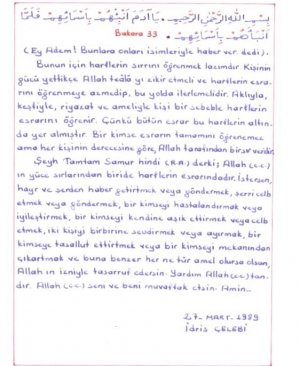 بِسْمِ اللهِ الرَّحْمٰنِ الرَّحِيمِ . يَا آدَمُ اَنْبِئْهُمْ بِاَسْمَائِهِمْ فَلَمَّا
اَنْبَاَهُمْ بِاَسْمَائِهِمْ . Bakara 33
( Ey Adem! Bunlara onları isimleriyle haber ver dedi).
Bunun için harflerin sırrını öğrenmek lazımdır Kişinin
gücü yettikçe Allah teâlâ yı zikir etmeli ve harflerin esra-
rını öğrenmeye azmedip, bu yolda ilerlemelidir. Aklıyla,
keşfiyle, riyazat ve ameliyle kişi bir sebeble harflerin
esrarını öğrenir. Çünkü bütün esrar bu harflerin altın-
da yer almıştır. Bir kimse esrarın tamamını öğrenemez
ama her kişinin derecesine göre, Allah tarafından bir sır verilir.
Şeyh Tamtam Samur hindi (R.A.) derki; Allah (c.c)
ın yüce sırlarından biride harflerin esrarındadır. İstersen,
hayr ve şerden haber getirtmek veya göndermek, şerri celb
etmek veya göndermek, bir kimseyi hastalandırmak veya
iyileştirmek, bir kimseyi kendine aşık ettirmek veya celb
etmek, iki kişiyi birbirine sevdirmek veya ayırmak, bir
kimseye tasallut ettirmek veya bir kimseyi mekanından
çıkartmak ve buna benzer her ne tür amel olursa olsun,
Allah ın izniyle tasarruf edersin. Yardım Allah (c.c) tan-
dır. Allah (c.c) seni ve beni muvaffak etsin. Amin...
27. MART. 1989
İdris ÇELEBİ